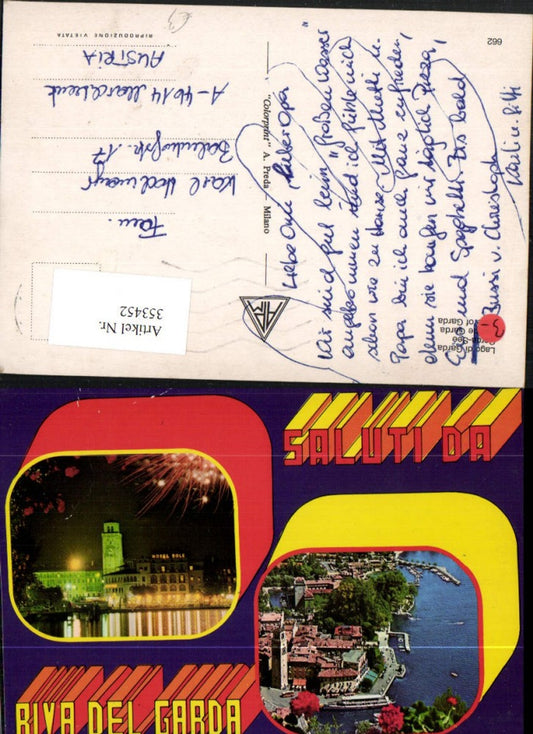 662
Liebe Oma, lieber Opa
Wir sind gut beim "großen Wasser"
angekommen und ich fühle mich
schon wie zu Hause. Mit Mutti u.
Papa bin ich auch ganz zufrieden,
denn sie kaufen mir täglich Pizza,
Eis und Spaghetti. Bis bald
Bussi v. Christoph
Lago di Garda
Garda-See
of Garda
3-
"Colorpuia" A. Preda Milano
Artikel Nr.
353452
Fam.
Karl
Bahnhofstr. 17
A-4614 Marchtrenk
AUSTRIA
RIPRODUZIONE VIETATA
SALUTI DA
HOTEL SOLE
RIVA DEL GARDA